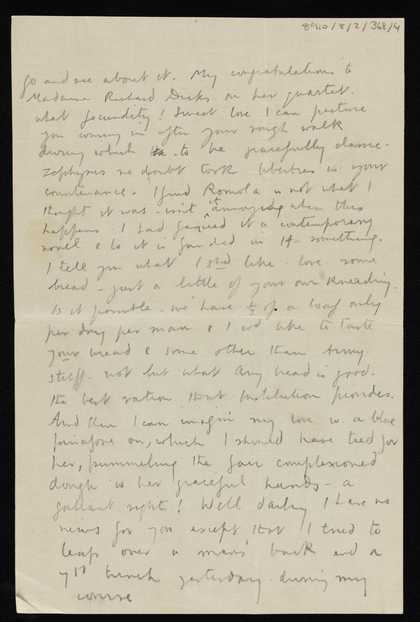 8910/8/2/368/4
go and see about it. My congratulations to
Madame Richard Dicks on her quartet.
what fecundity! Sweet love I can picture
you coming in after your rough walk
during which to be gracefully classic
zephyrus no doubt took liberties with your
countenance. I find Romola is not what I
thought it was - isn't it annoying when this
happens. I had fancied it a contemporary
novel & lo it is founded in 14 - something.
I tell you what I shd like - love some
bread - just a little of your own kneading.
Is it possible. We have ½ of a loaf only
per day per man & I wd like to taste
your bread & some other than Army
stuff - not but what Army bread is good.
the best ration that Institution provides.
And then I can imagine my love in a blue
pinafore on, which I should have tied for
her, pummeling the fair complexioned
dough with her graceful hands - a
gallant sight! Well darling I have no
news for you except that I tried to
leap over a man's back and a
7ft trench yesterday during my
course